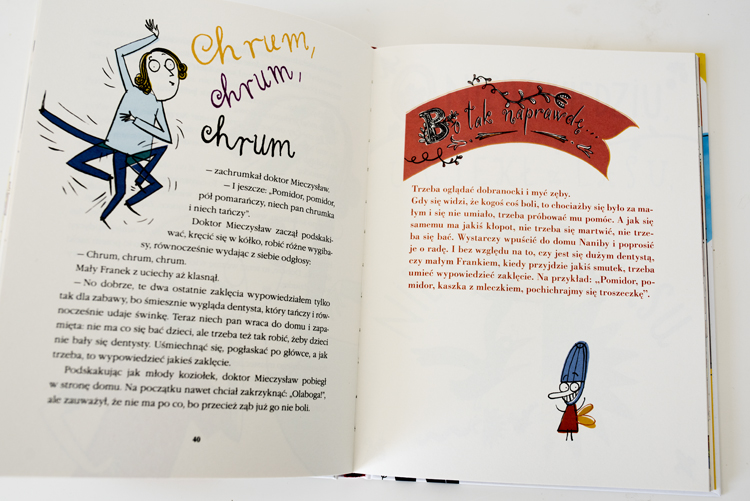 Chrum,
chrum,
chrum
– zachrumkał doktor Mieczysław.
– I jeszcze: „Pomidor, pomidor,
pół pomarańczy, niech pan chrumka
i niech tańczy”.
Doktor Mieczysław zaczął podskaki-
wać, kręcić się w kółko, robić różne wygiba-
sy, równocześnie wydając z siebie odgłosy:
– Chrum, chrum, chrum.
Mały Franek z uciechy aż klasnął.
– No dobrze, te dwa ostatnie zaklęcia wypowiedziałem tylko
tak dla zabawy, bo śmiesznie wygląda dentysta, który tańczy i rów-
nocześnie udaje świnkę. Teraz niech pan wraca do domu i zapa-
mięta: nie ma co się bać dzieci, ale trzeba też tak robić, żeby dzieci
nie bały się dentysty. Uśmiechnąć się, pogłaskać po główce, a jak
trzeba, to wypowiedzieć jakieś zaklęcie.
Podskakując jak młody koziołek, doktor Mieczysław pobiegł
w stronę domu. Na początku nawet chciał zakrzyknąć: „Olaboga!”,
ale zauważył, że nie ma po co, bo przecież ząb już go nie boli.
40
Bo tak naprawdę...
Trzeba oglądać dobranocki i myć zęby.
Gdy się widzi, że kogoś coś boli, to chociażby się było za ma-
łym i się nie umiało, trzeba próbować mu pomóc. A jak się
samemu ma jakiś kłopot, nie trzeba się martwić, nie trze-
ba się bać. Wystarczy wpuścić do domu Naniby i poprosić
je o radę. I bez względu na to, czy jest się dużym dentystą,
czy małym Frankiem, kiedy przyjdzie jakiś smutek, trzeba
umieć wypowiedzieć zaklęcie. Na przykład: „Pomidor, po-
midor, kaszka z mleczkiem, pochichrajmy się troszeczkę”.